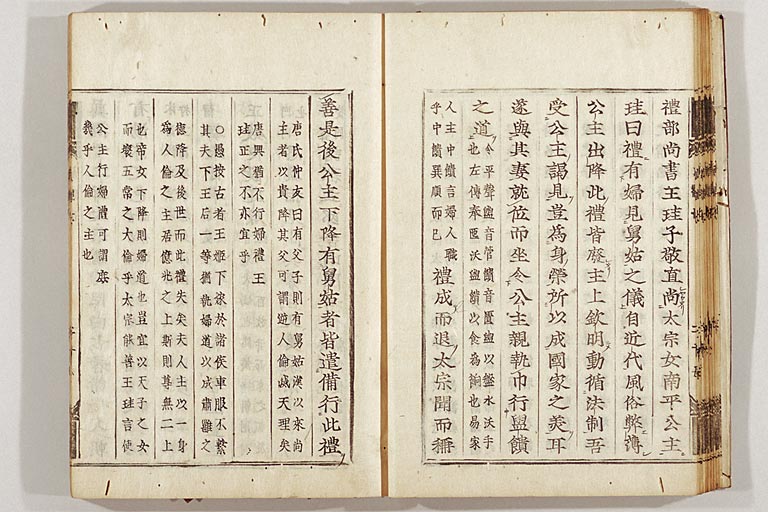 禮部尚書王珪子敬直尚太宗女南平公主
珪曰禮有婦見舅姑之儀自近代風俗弊薄
公主出降此禮皆廢主上欽明動循法制吾
受公主謁見豈為身榮所以成國家之美耳
遂與其妻就位而坐令公主親執巾行盥饋
之道令平聲盥音管饋音匱盥以盤水沃手
也左傳奉匜沃盥饋以食為餉也易家
人主中饋言婦人職
乎中饋巽順而已禮成而退太宗聞而稱
善是後公主下降有舅姑者皆遣備行此禮
唐氏仲友曰有父子則有舅姑漢以來尚
主者以貴降其父可謂逆人倫滅天理矣
唐興猶不行婦禮王
珪正之不亦宜乎
○愚按古者王姬下嫁於諸侯車服不繫
其夫下王后一等猶執婦道以成肅雝之
德降及後世而此禮失矣夫人主以一身
為人倫之主居億兆之上斯則甚無二上
也帝女下降則婦道也豈宜以天子之女
而瘝五常之大倫乎太宗能善王珪言使
公主行婦禮可謂庶
幾乎人倫之主也